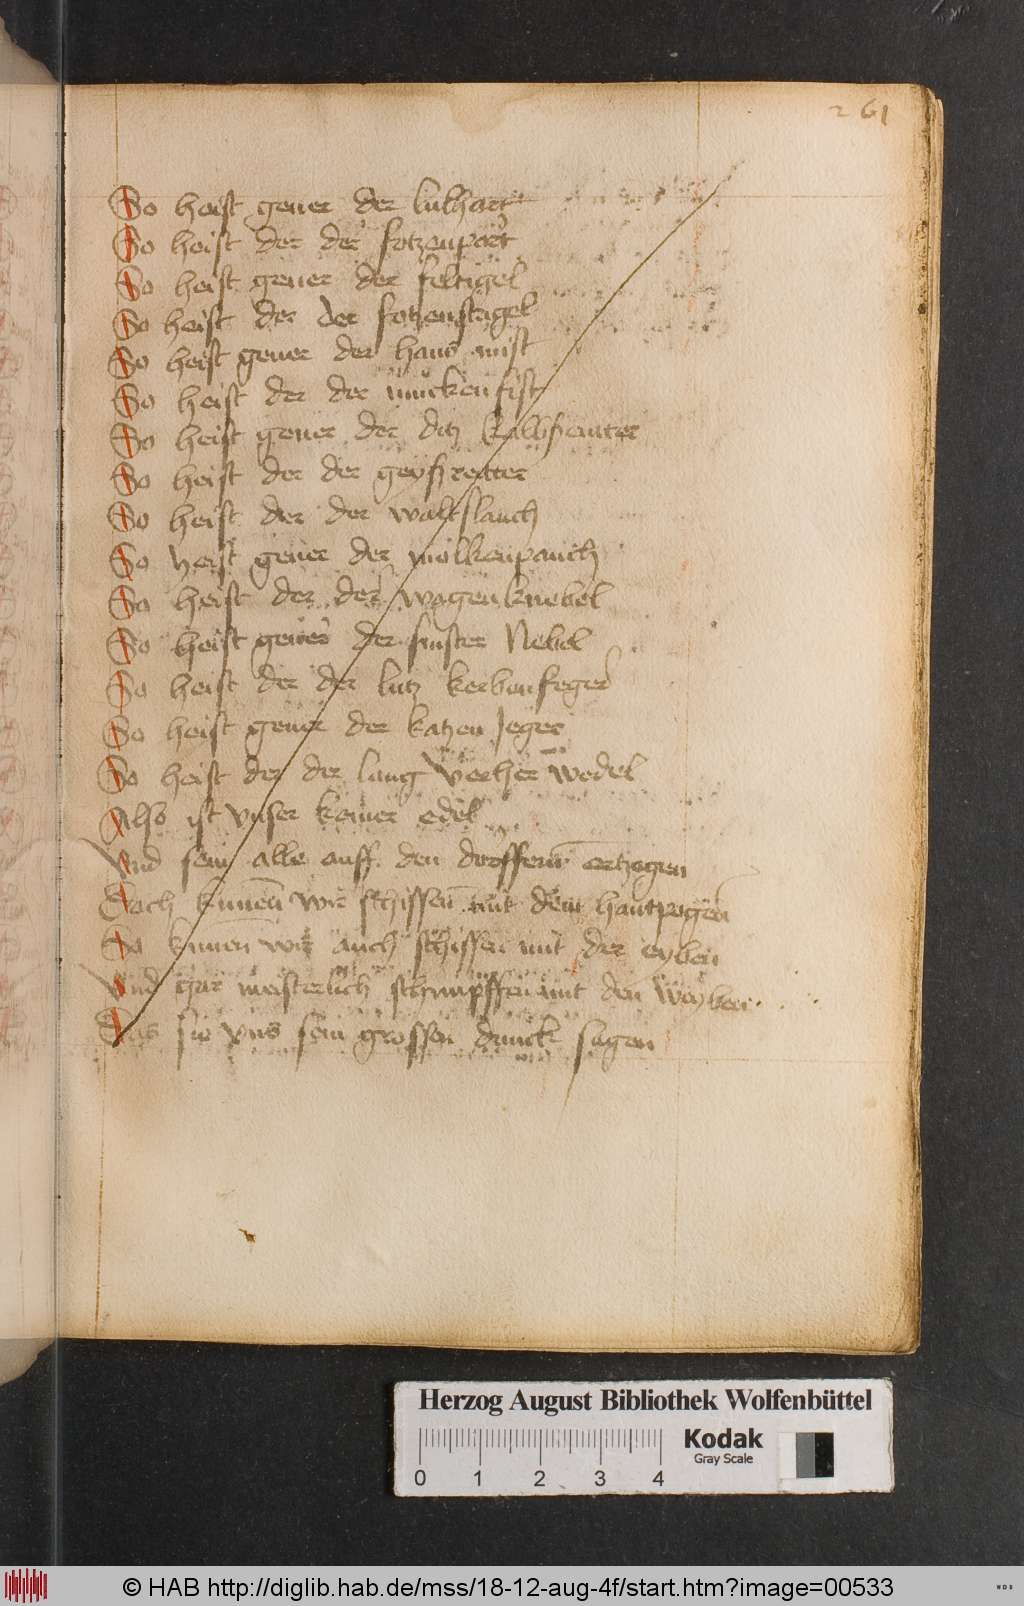 261
So heist gener der lulhart
So heist der der fotzenpart
So heist gener der feltigel
So heist der der fotzenstrigel
So heist gener der hans mist
So heist der der mückenfist
So heist gener der ditz
So heist der der geyßreitter
So heist der der waltslauch
So heist gener der molkenpauch
So heist der der wagenknebel
So heist gener der finster Nebel
So heist der der lutz kerbenfeger
So heist gener der katzen Jeger
So heist der der lang wedel
Also ist vnser keiner edel
Vnd sein alle auff den dorffern ertzogen
Doch kunnen wir schissen mit dem hantpogen
So kunnen wir auch schissen mit der eyben
Vnd gar meisterlich schimpffen mit den weyben
Das sie vns sein grossen danck sagen
Herzog August Bibliothek Wolfenbüttel
Kodak
Gray Scale
0 1 2 3 4
© HAB http://diglib.hab.de/mss/18-12-aug-4f/start.htm?image=00533